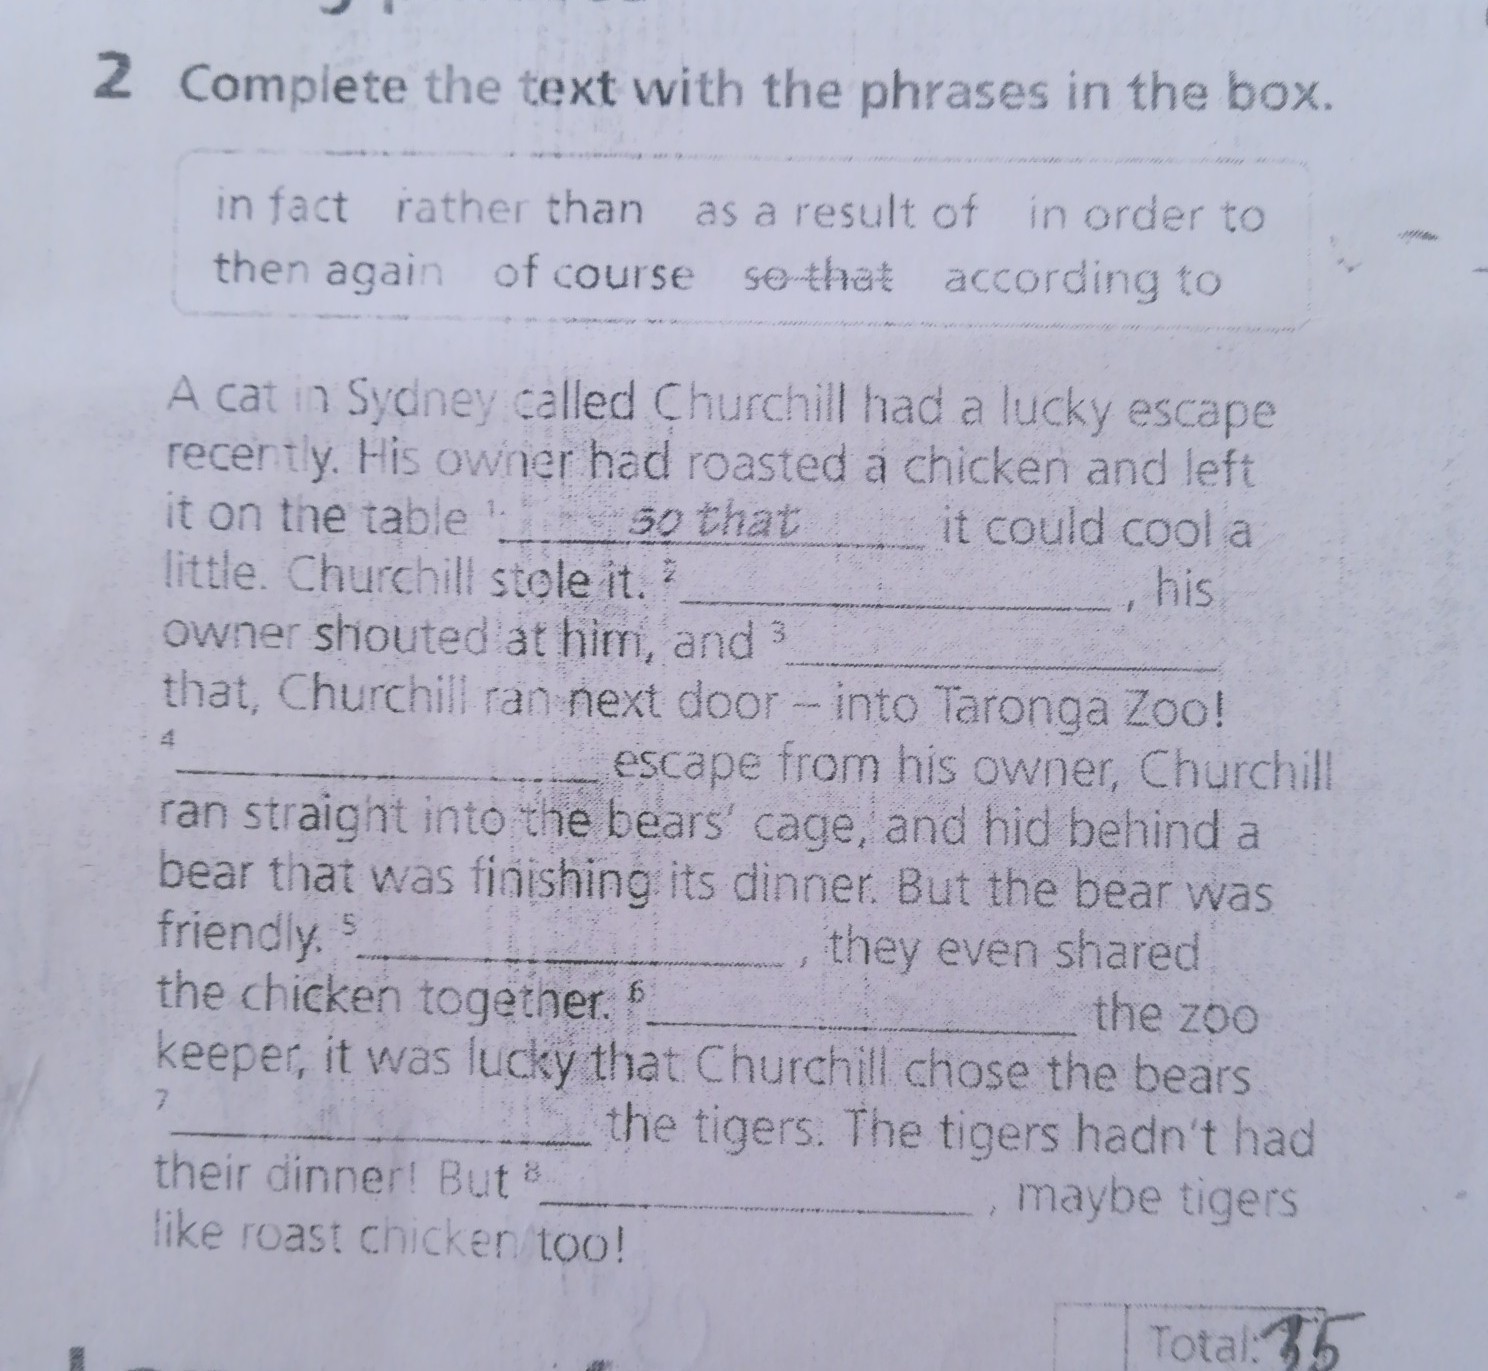 2 Complete the text with the phrases in the box.
in fact rather than as a result of in order to
then again of course so that according to
A cat in Sydney called Churchill had a lucky escape
recently. His owner had roasted a chicken and left
it on the table 1 so that it could cool a
little. Churchill stole it. 2 , his
owner shouted at him, and 3
that, Churchill ran next door – into Taronga Zoo!
4 escape from his owner, Churchill
ran straight into the bears' cage, and hid behind a
bear that was finishing its dinner. But the bear was
friendly. 5 , they even shared
the chicken together. 6 the zoo
keeper, it was lucky that Churchill chose the bears
7 the tigers. The tigers hadn't had
their dinner! But 8 , maybe tigers
like roast chicken too!
Total: